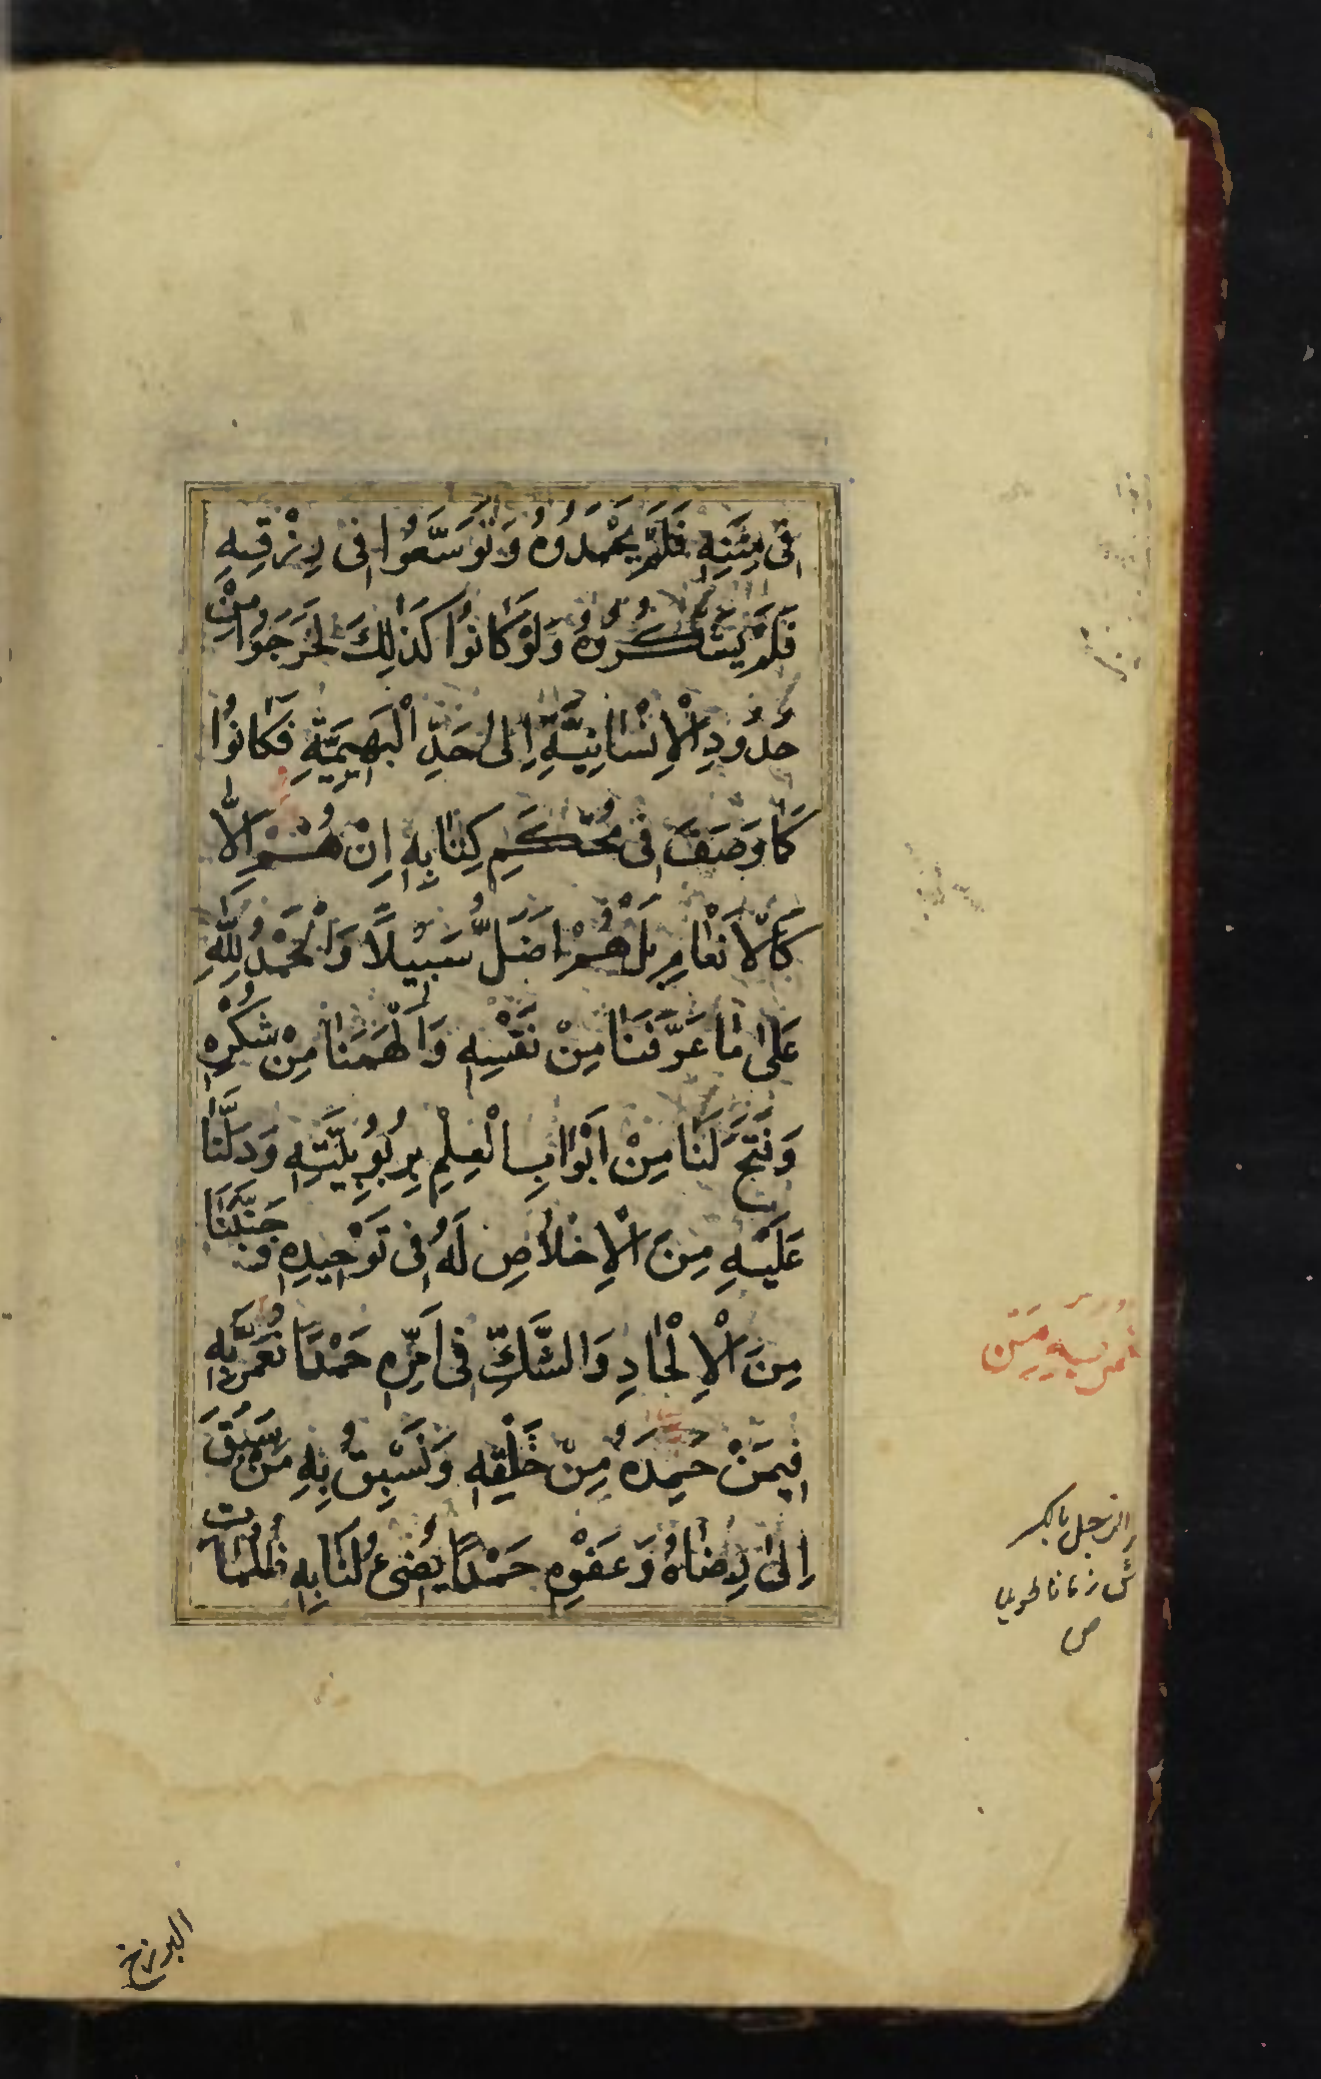 فِى مِنَنِهِ فَلَمْ يَحْمَدُوهُ وَتَوَسَّعُوا فِى رِزْقِهِ
فَلَمْ يَشْكُرُوهُ وَلَوْ كَانُوا كَذٰلِكَ لَخَرَجُوا مِنْ
حُدُودِ الْاِنْسَانِيَّةِ اِلىٰ حَدِّ الْبَهِيمِيَّةِ فَكَانُوا
كَمَا وَصَفَ فِى مُحْكَمِ كِتَابِهِ اِنْ هُمْ اِلَّا
كَالْاَنْعَامِ بَلْ هُمْ اَضَلُّ سَبِيْلاً وَالْحَمْدُ لِلّٰهِ
عَلىٰ مَا عَرَّفَنَا مِنْ نَفْسِهِ وَاَلْهَمَنَا مِنْ شُكْرِهِ
وَفَتَحَ لَنَا مِنْ اَبْوَابِ الْعِلْمِ بِرُبُوبِيَّتِهِ وَدَلَّنَا
عَلَيْهِ مِنَ الْاِخْلاصِ لَهُ فِى تَوْحِيدِهِ وَجَنَّبَنَا
مِنَ الْاِلْحَادِ وَالشَّكِّ فِى اَمْرِهِ حَمْدًا نُعَمَّرُ بِهِ
فِيمَنْ حَمِدَهُ مِنْ خَلْقِهِ وَنَسْبِقُ بِهِ مَنْ سَبَقَ
اِلىٰ رِضَاهُ وَعَفْوِهِ حَمْدًا يُضِىءُ لَنَا بِهِ ظُلُمَاتِ
البرزخ